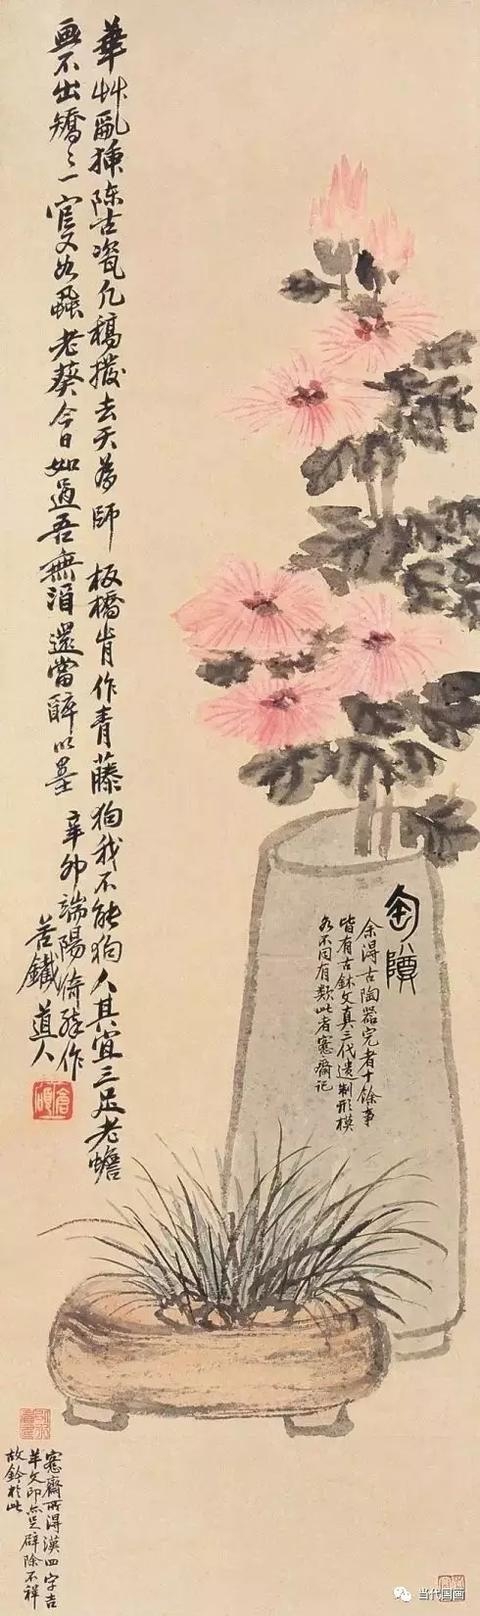 匋
余得古陶器完者十餘事
皆有古鉥文真三代遺制形模
各不同有類此者愙齋記
華艸亂插陳古瓷凡稿撥去天為師板橋肯作青藤狗我不能狗人其宜三足老蟾
畫不出矯〻一又如老葵今日如過吾無酒還當醉以墨 辛卯端陽倚醉作
苦鐵道人
倉碩
愙齋所得漢四字吉
羊文印亦足辟除不祥
故鈐於此
当代国画